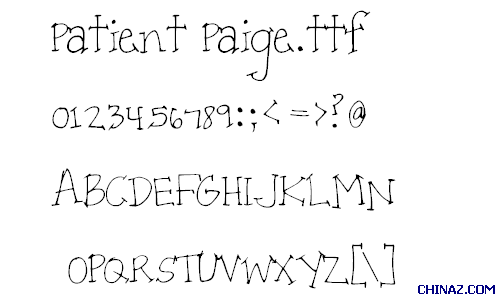 Patient Paige.ttf
0123456789:;< = >?@
ABCDEFGHIJKLMN
OPQRSTUVWXYZ[\]
CHINAZ.COM